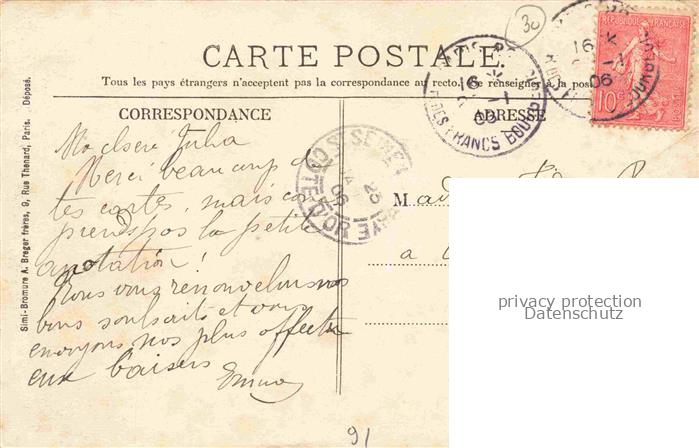 30
CARTE POSTALE.
Tous les pays étrangers n'acceptent pas la correspondance au recto. (Se renseigner à la poste
RÉPUBLIQUE FRANÇAISE
10c
CORRESPONDANCE
ADRESSE
R. DES FRANCS BOURGEOIS
16
06
16
06
CÔTE D'OR
23
06
Simi-Bromure A. Breger frères, 9, Rue Thenard, Paris. Déposé.
Ma chère Julia
Merci beaucoup de
tes cartes, mais com
prends pas la petite
anotation!
Nous vous renouvelons nos
bons souhaits et vous
envoyons nos plus affectu
eux baisers
Emma
M
a
privacy protection
Datenschutz
91